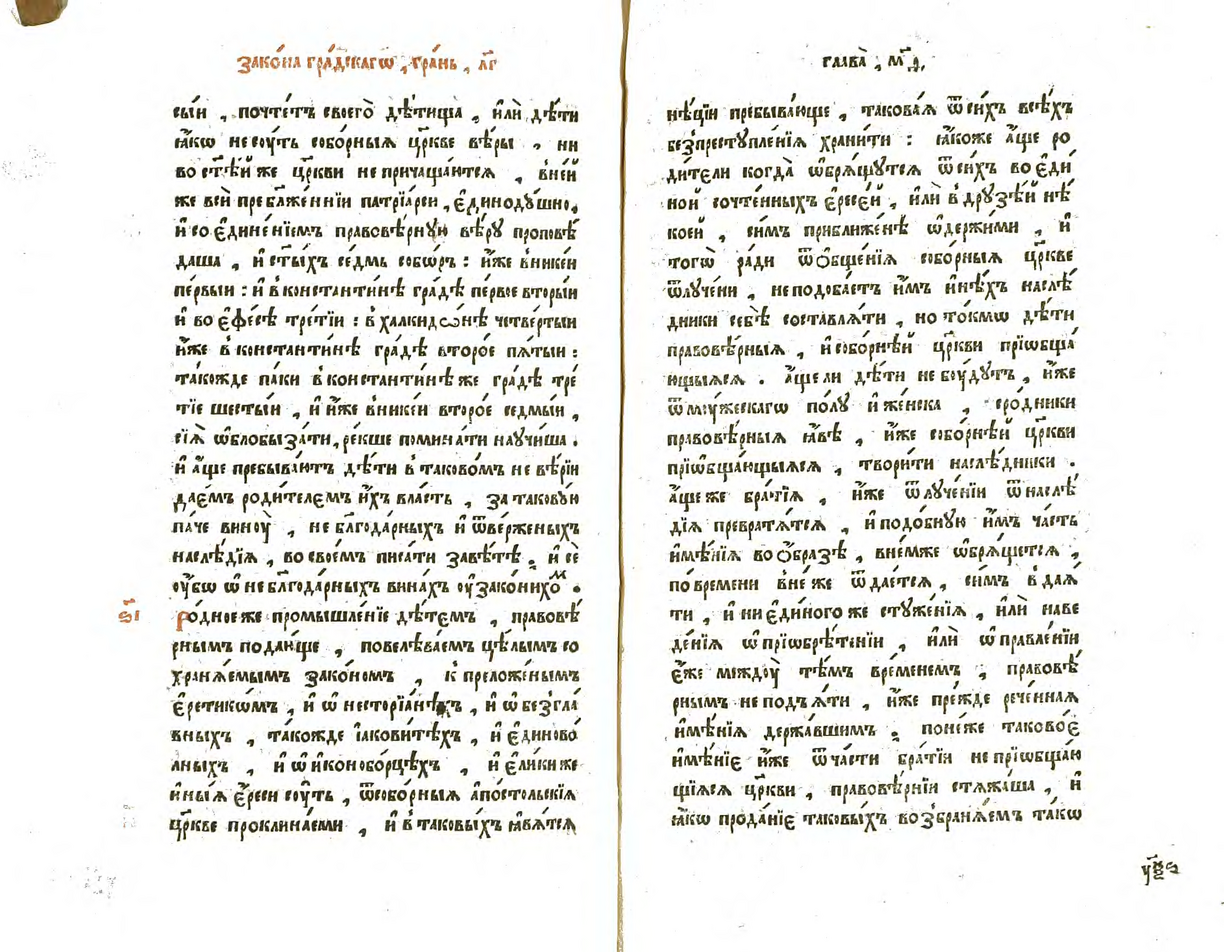 Зако́на гра́дскагѡ , гра́нь , л҃г
сы́и , почте́тъ своего̀ дѣ́тища , и҆лѝ дѣ́ти
ꙗ҆́кѡ несꙋ́ть собо́рныѧ цр҃кве вѣ́ры , ни
во ст҃ѣ́й же цр҃кви не причаща́ютсѧ , вне́й
же всѝ пребл҃же́ннїи патрїа́рси , є҆динодꙋ́шно ,
и҆ со є҆дине́нїемъ правовѣ́рную вѣ́рꙋ проповѣ́
даша , и҆ ст҃ы́хъ се́дмь собѡ́ръ : и҆́же вникѐи
пе́рвыи : и҆ вконстанти́нѣ гра́дѣ пе́рвое вторы́и
и҆ во є҆фе́сѣ тре́тїи : в халкидѡ́нѣ четве́ртыи
и҆́же в константи́нѣ гра́дѣ второ́е пѧ́тыи :
та́кожде па́ки в константи́нѣ же гра́дѣ тре́
тїе шесты́и , и҆ и҆́же вникѐи второ́е седмы́и ,
сїѧ̀ ѡ҆блобыза́ти , ре́кше помина́ти наꙋчи́ша .
и҆ а҆́ще пребыва́ютъ дѣ́ти в таково́мъ не вѣ́рїи
дае́мъ роди́телемъ и҆́хъ вла́сть , за таковꙋ́ю
па́че винꙋ̀ , не бл҃года́рныхъ и҆ ѿве́рженыхъ
наслѣ́дїѧ , во свое́мъ писа́ти завѣ́тѣ . и҆ се
ᲂу҆́бѡ ѡ҆ не бл҃года́рныхъ вина́хъ ᲂу҆зако́нихоⷨ .
ѕ҃і Ро́дное же промышле́нїе дѣ́темъ , правовѣ́
рнымъ пода́юще , повелѣва́емъ цѣ́лымъ со
хранѧ́емымъ зако́номъ , к преложе́нымъ
є҆ретикѡ́мъ , и҆ ѡ҆ несторїа́нѣхъ , и҆ ѡ҆ безгла́
вныхъ , та́кожде і҆а́ковитѣхъ , и҆ є҆диново́
лныхъ , и҆ ѡ҆ и҆коноборцѣ́хъ , и҆ є҆ли́ки же
и҆ны́ѧ є҆́реси сꙋ́ть , ѿ собо́рныѧ а҆по́стольскїѧ
цр҃кве проклина́еми , и҆ в таковы́хъ ꙗ҆вѧ́тсѧ
глава̀ , м҃д ,
нѣ́цїи пребыва́юще , такова́ѧ ѿ си́хъ всѣ́хъ
безпреступле́нїѧ храни́ти : ꙗ҆́коже а҆́ще ро
ди́тели когда̀ ѡ҆брѧ́щутсѧ ѿ си́хъ во є҆ди́
ной сочте́нныхъ є҆ресе́й , и҆лѝ в дрꙋзѣ́й нѣ́
коей , си́мъ приближе́нѣ ѡ҆держи́ми , и҆
тогѡ̀ ра́ди ѿ ѻ҆бще́нїѧ собо́рныѧ цр҃кве
ѿлꙋ́чени , не подоба́етъ и҆̀мъ и҆нѣ́хъ наслѣ́
дники себѣ̀ составлѧ́ти , но то́кмѡ дѣ́ти
правовѣ́рныѧ , и҆ собо́рнѣй цр҃кви прїѡбща́
ющыѧсѧ . а҆́ще ли дѣ́ти не бꙋ́дꙋтъ , и҆́же
ѿ мꙋ́жескагѡ по́лꙋ и҆ же́нска , сро́дники
правовѣ́рныѧ ꙗ҆́вѣ , и҆́же собо́рнѣй цр҃кви
прїѡбща́ющыѧсѧ , твори́ти наслѣ́дники .
а҆́ще же бра́тїѧ , и҆́же ѿлꙋче́нїи ѿ наслѣ́
дїѧ превратѧ́тсѧ , и҆ подо́бнꙋю и҆̀мъ ча́сть
и҆мѣ́нїѧ во ѻ҆́бразѣ , вне́мже ѡ҆брѧ́щетсѧ ,
по времени вне́ же ѿдае́тсѧ , си́мъ вдаѧ́
ти , и҆ ни є҆ди́ного же стꙋже́нїѧ , и҆лѝ наве
де́нїѧ ѡ҆ прїѡбрѣ́тенїи , и҆лѝ ѡ҆ правле́нїи
є҆́же междꙋ̀ тѣ́мъ вре́менемъ , правовѣ́
рнымъ не под̾ѧ́ти , и҆́же пре́жде рече́нная
и҆мѣ́нїѧ держа́вшимъ . поне́же таково́е
и҆мѣ́нїе и҆́же ѿ ча́сти бра́тїи не прїѡбща́ю
щїѧсѧ цр҃кви , правовѣ́рнїи стѧжа́ша , и҆
ꙗ҆́кѡ прода́нїе таковы́хъ возбранѧ́емъ та́кѡ